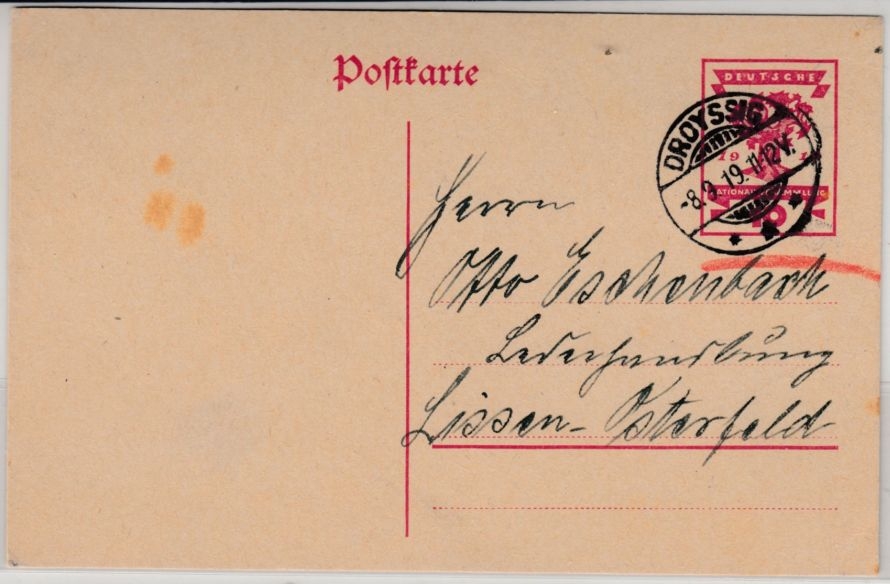 Postkarte
DEUTSCHE
DROYSSIG
-8.9.19.11-12V.
19 19
NATIONALVERSAMMLUNG
10
Herrn
Otto Eschenbach
Lederhandlung
Lissen-Osterfeld